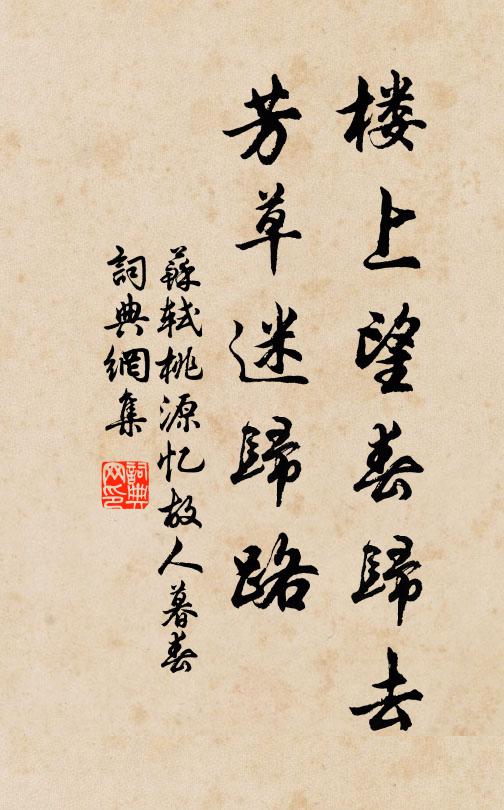 楼上望春歸去
芳草迷歸路
蘇軾桃源忆故人暮春
詞典網集
詞典网印